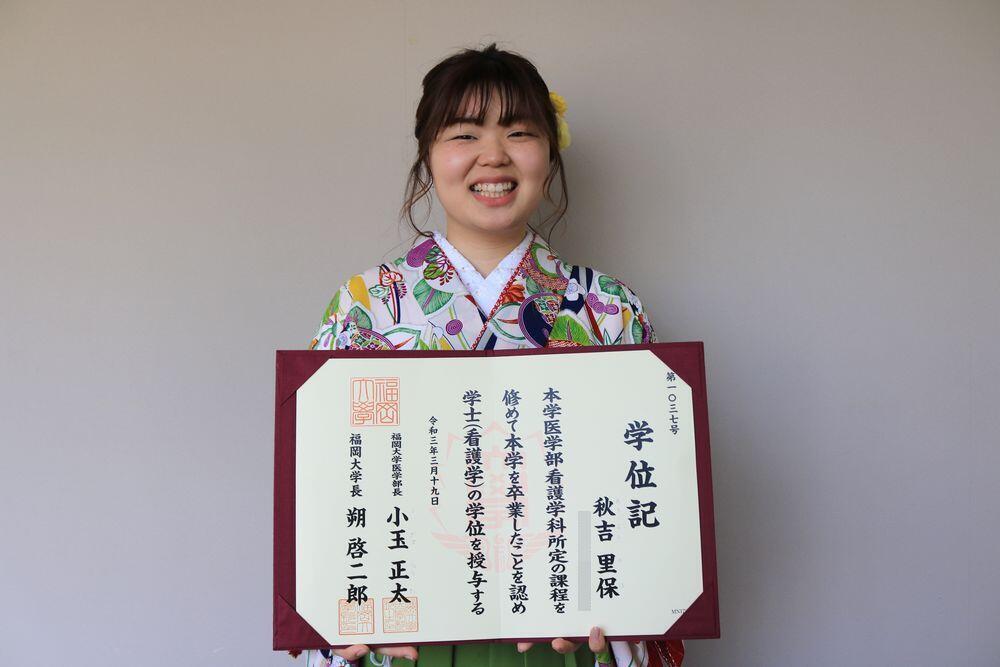 第一〇三七号
学位記
秋吉 里保
本学医学部看護学科所定の課程を
修めて本学を卒業したことを認め
学士(看護学)の学位を授与する
令和三年三月十九日
福岡大学医学部長 小玉 正太
福岡大学長 朔 啓二郎
福岡大学